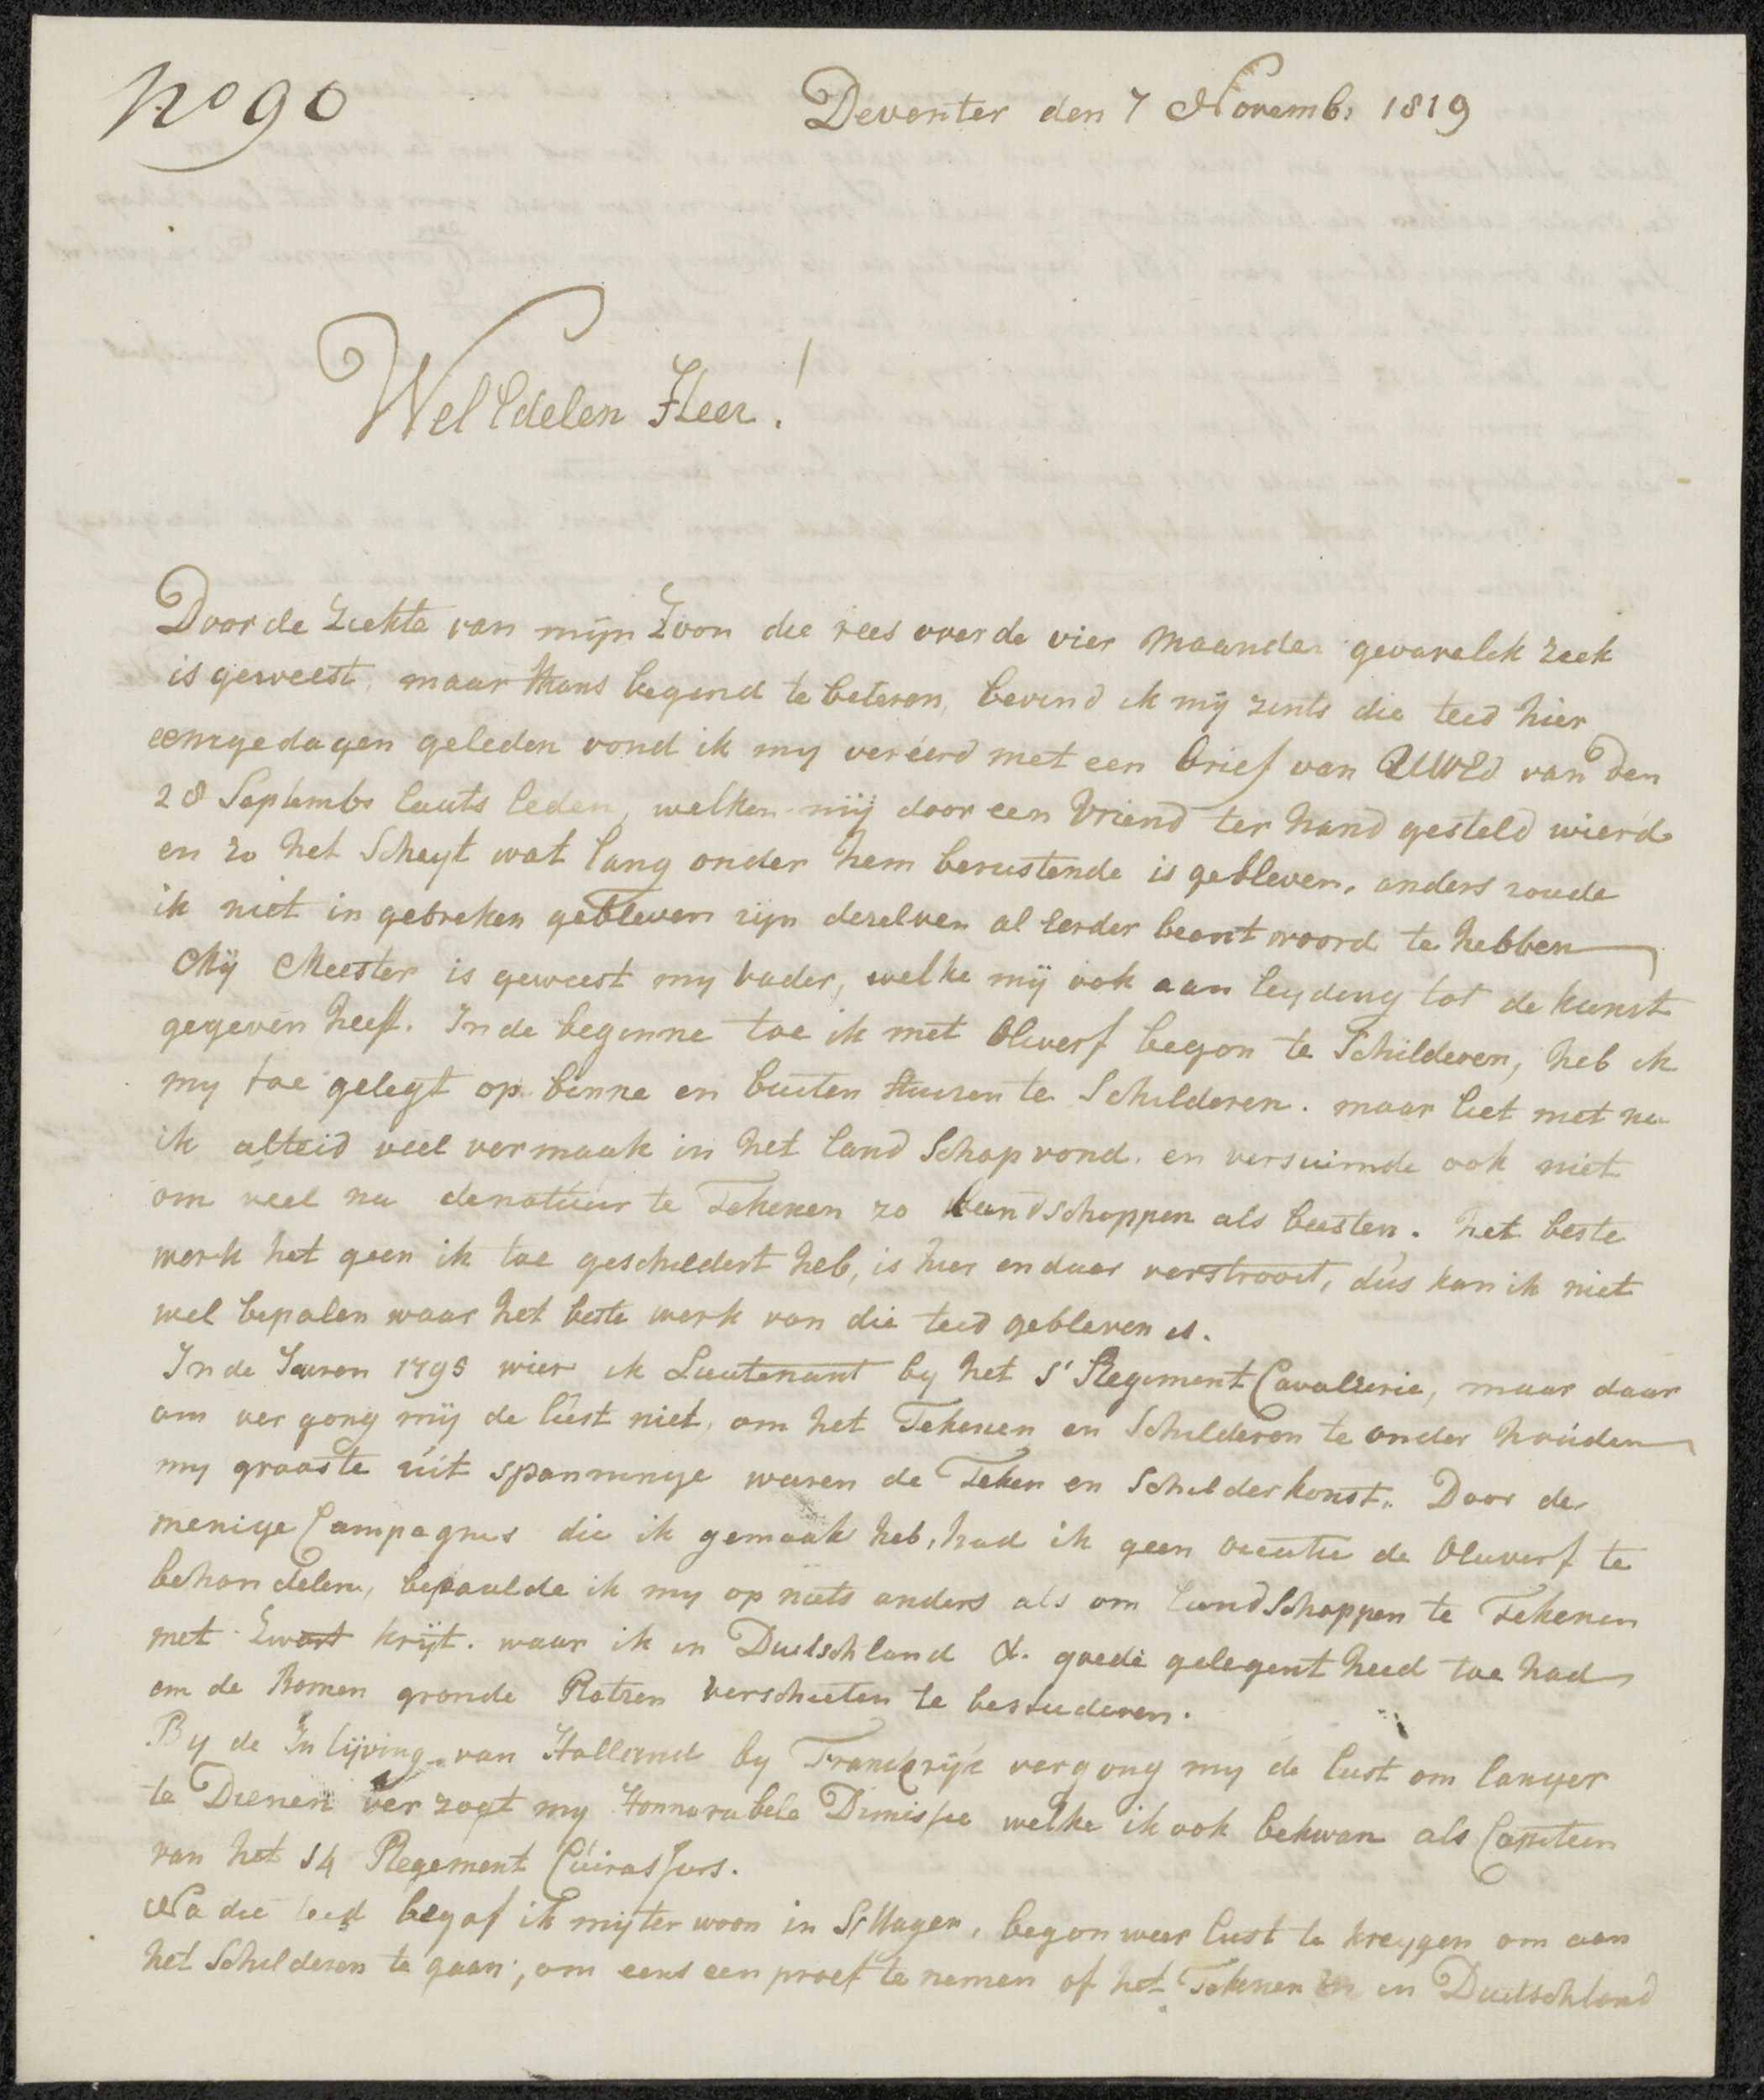 No 90
Deventer den 7 Novemb: 1819
Wel Edelen Heer!
Door de Ziekte van mijn Zoon die rees over de vier maanden gevarelik ziek
is geweest, maar thans begend te beteren, bevind ik mij zints die teid hier
eenige dagen geleden vond ik my veréerd met een brief van UWEd van den
28 Septembr laats leden, welken mij door een Vriend ter hand gesteld wierd
en zo het Scheyt wat lang onder hem berustende is gebleven, anders zoude
ik niet in gebreken gebleven zijn dezelven al eerder beant woord te hebben
Mij Meester is geweest my vader, welke mij ook aan leyding tot de kunst
gegeven heeft. In de beginne toe ik met Oliverf begon te Schilderen, heb ik
my toe gelegt op binne en buiten Huizen te Schilderen. maar liet met na
ik alteid veel vermaak in het land Schap vond. en versuimde ook niet
om veel na de natuur te Tekenen zo landschappen als beesten. het beste
werk het geen ik toe geschildert heb, is hier en daar verstrooit, dus kan ik niet
wel bepalen waar het beste werk van die teid gebleven is.
In de Jaren 1795 wier ik Lieutenant by het 1' Regiment Cavallerie, maar daar
om vergong mij de lust niet, om het Tekenen en Schilderen te onder houden
my graaste uit spanninge waren de Teken en Schilderkonst. Door de
menige Campagnes die ik gemaak heb, had ik geen ocatie de Oliverf te
behandelen, bepaalde ik my op niets anders als om landSchappen te Tekenen
met Zwart krijt. waar ik in Duitschland &. goede gelegent heid toe had
om de Bomen gronde Rotzen Verschieten te bestuderen.
By de Inlijving van Holland by Franckrijk vergong my de lust om langer
te Dienen ver zogt my Honnarabele Dimissie welke ik ook bekwam als Capitein
van het 14 Regement Cuirassiers.
Na die teid begaf ik mij ter woon in S'Hagen, begon weer lust te kreygen om aan
het Schilderen te gaan, om eens een proef te nemen of het Tekenen in Duitschland